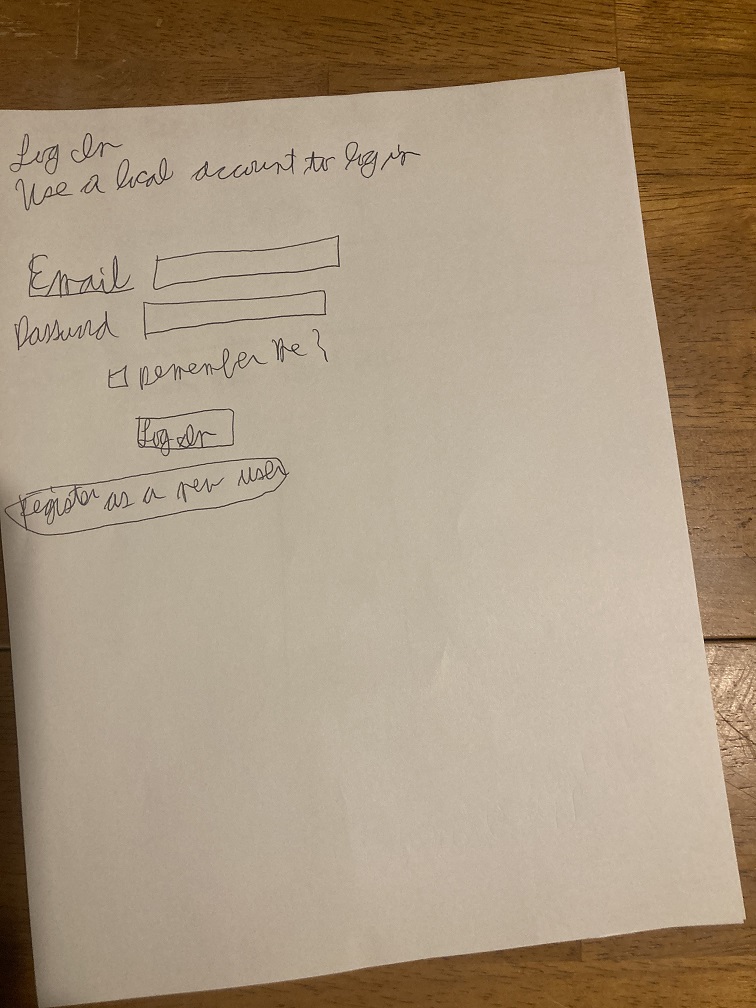 Log In
Use a local account to log in
Email
Password
Remember Me?
Log In
Register as a new user